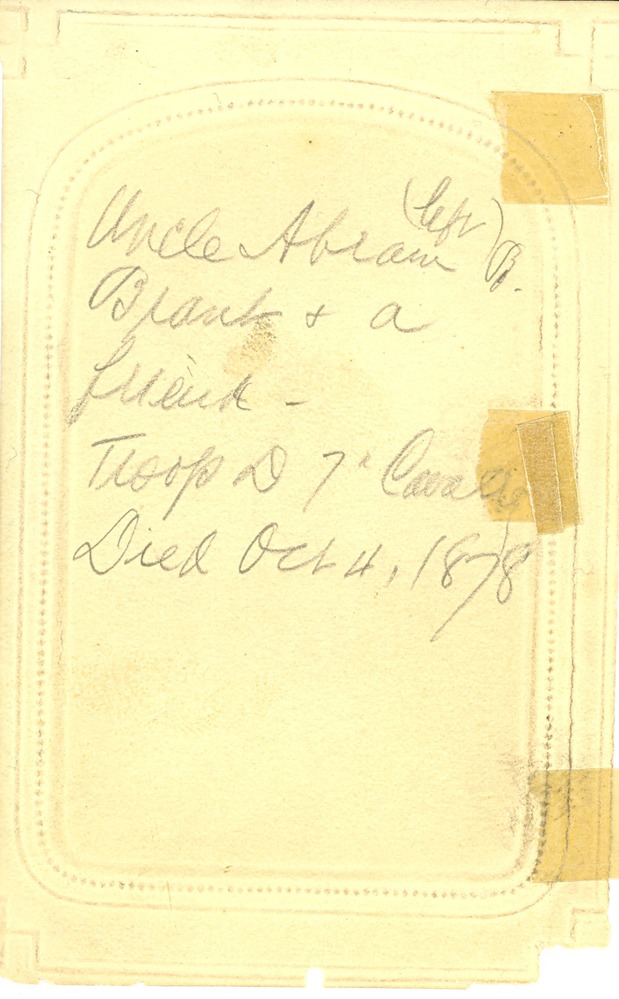 (left)
Uncle Abram B.
Brant + a
friend -
Troop D 7" Cavalry
Died Oct 4, 1878